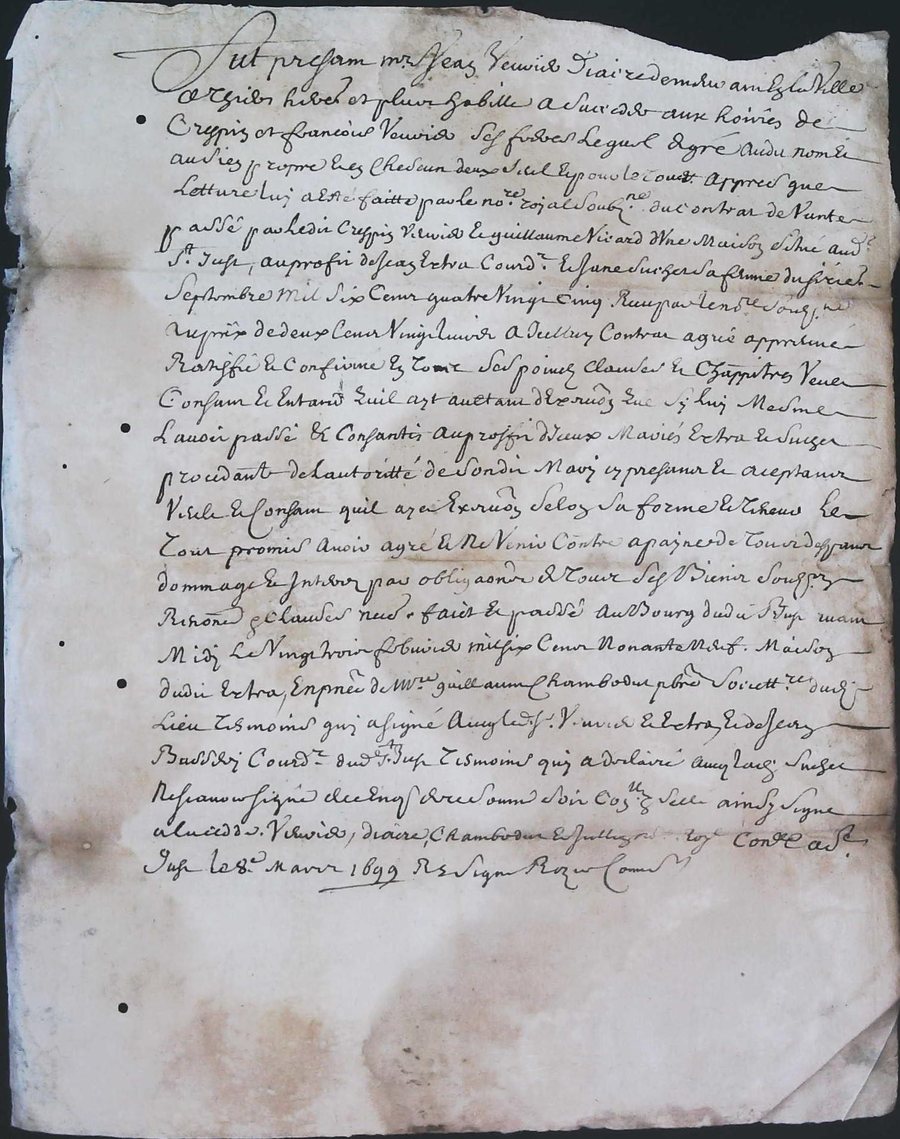 Fut presant mre Jean Veuvier Diaire demeurant en la Ville
heres et plus habille a succeder aux hoirs de
Creppin et francois Veuvier ses freres lequel de gré au du nom et
au sien propre et en chescun deux seul et pour le tout appres que
Letture luy a esté faitte par le nore royal soubzne du contrat de Vante
passé par ledit Creppin Veuvier et guillaume Vicard d'Une Maison scitué aud
St Just, au profit de Jean Extra Courdr et Jane Suchet sa femme du
Septembre mil six Cent quatre Vingt Cinq Receu par le nre soubzne
au prix de deux Cent Vingt livres a Icelluy Contrat agrée appremé
Ratiffié et Confirme en tout ses points Clauses et Chappitres Veut
Consant et Entand quil ayt auttant d'Ex͠on que sy luy Mesme
Lavoit passé et Consantis au proffit d'Jceux Mariés Extra et Suchet
procedante de l'autoritté de sondit Mary cy presant et aceptant
Veult et Consant quil aye Ex͠on selon sa forme et Teneur Le
Tout promis avoir agré et Ne Venir Contre a payne de Tout despant
dommage et Interest par obligaon de tout ses Biens Soubz
Renons et Clauses neces. fait et passé au Bourg dudit St Just avant
Midy Le Vingt trois febvrier mil six Cent Nonante Neuf. Maison
dudit Extra, En pnce de Mre guillaume Chambodut pbre Societtre dudit
Lieu Tesmoins quy a signé Avec led sr. Veuvier et Extra, Et de Jean
Courdr dud St Just Tesmoins quy a declairé avec lad Suchet
Ne scavoir signé de ce Enquis
Veuvier, diaire, Chambodut et Jullien Conlle a St
Just le 8e Mars 1699 R5s Signe Rozier Commis